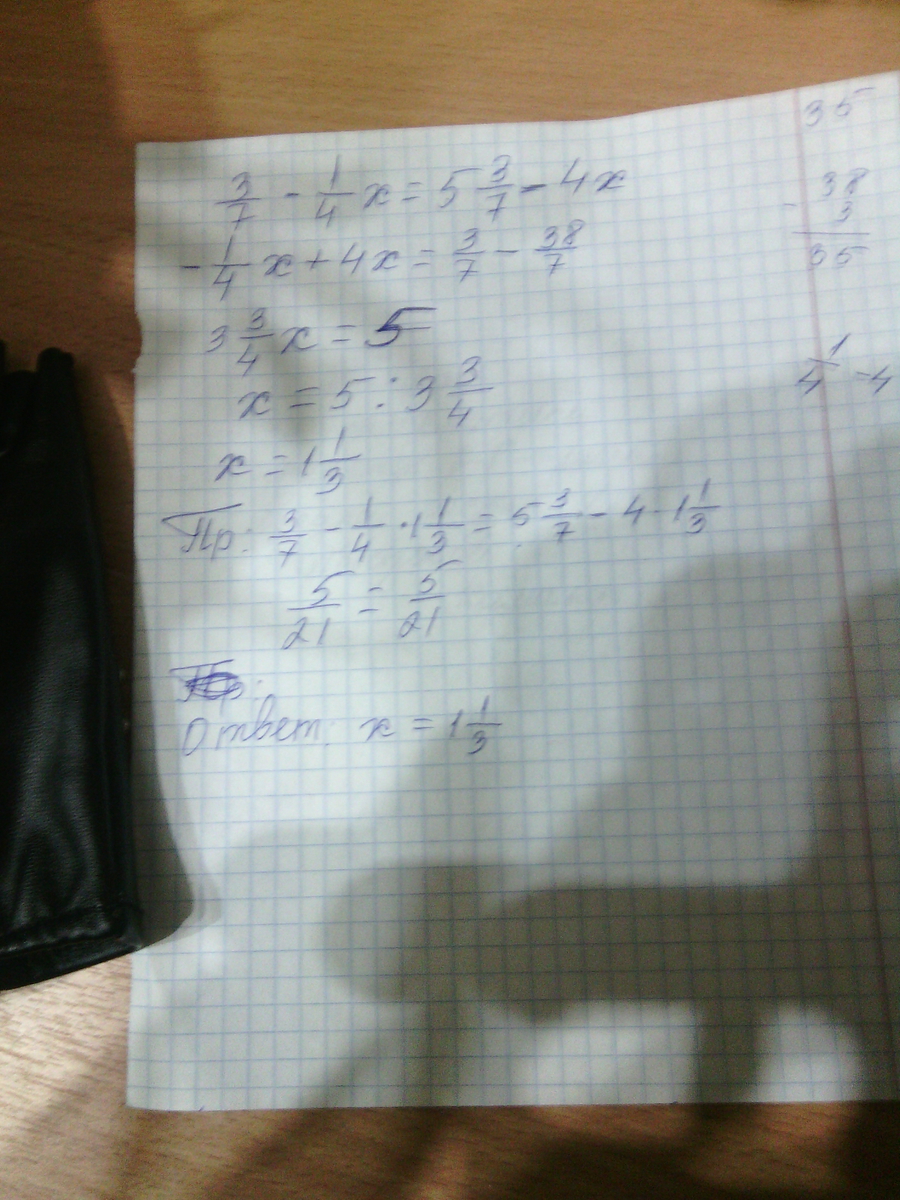 3/7 - 1/4 x = 5 3/7 - 4x
- 1/4 x + 4x = 3/7 - 38/7
3 3/4 x = 5
x = 5 : 3 3/4
x = 1 1/3
Пр: 3/7 - 1/4 · 1 1/3 = 5 3/7 - 4 · 1 1/3
5/21 = 5/21
Ответ: x = 1 1/3
35
- 38
3
35
1/4 - 4